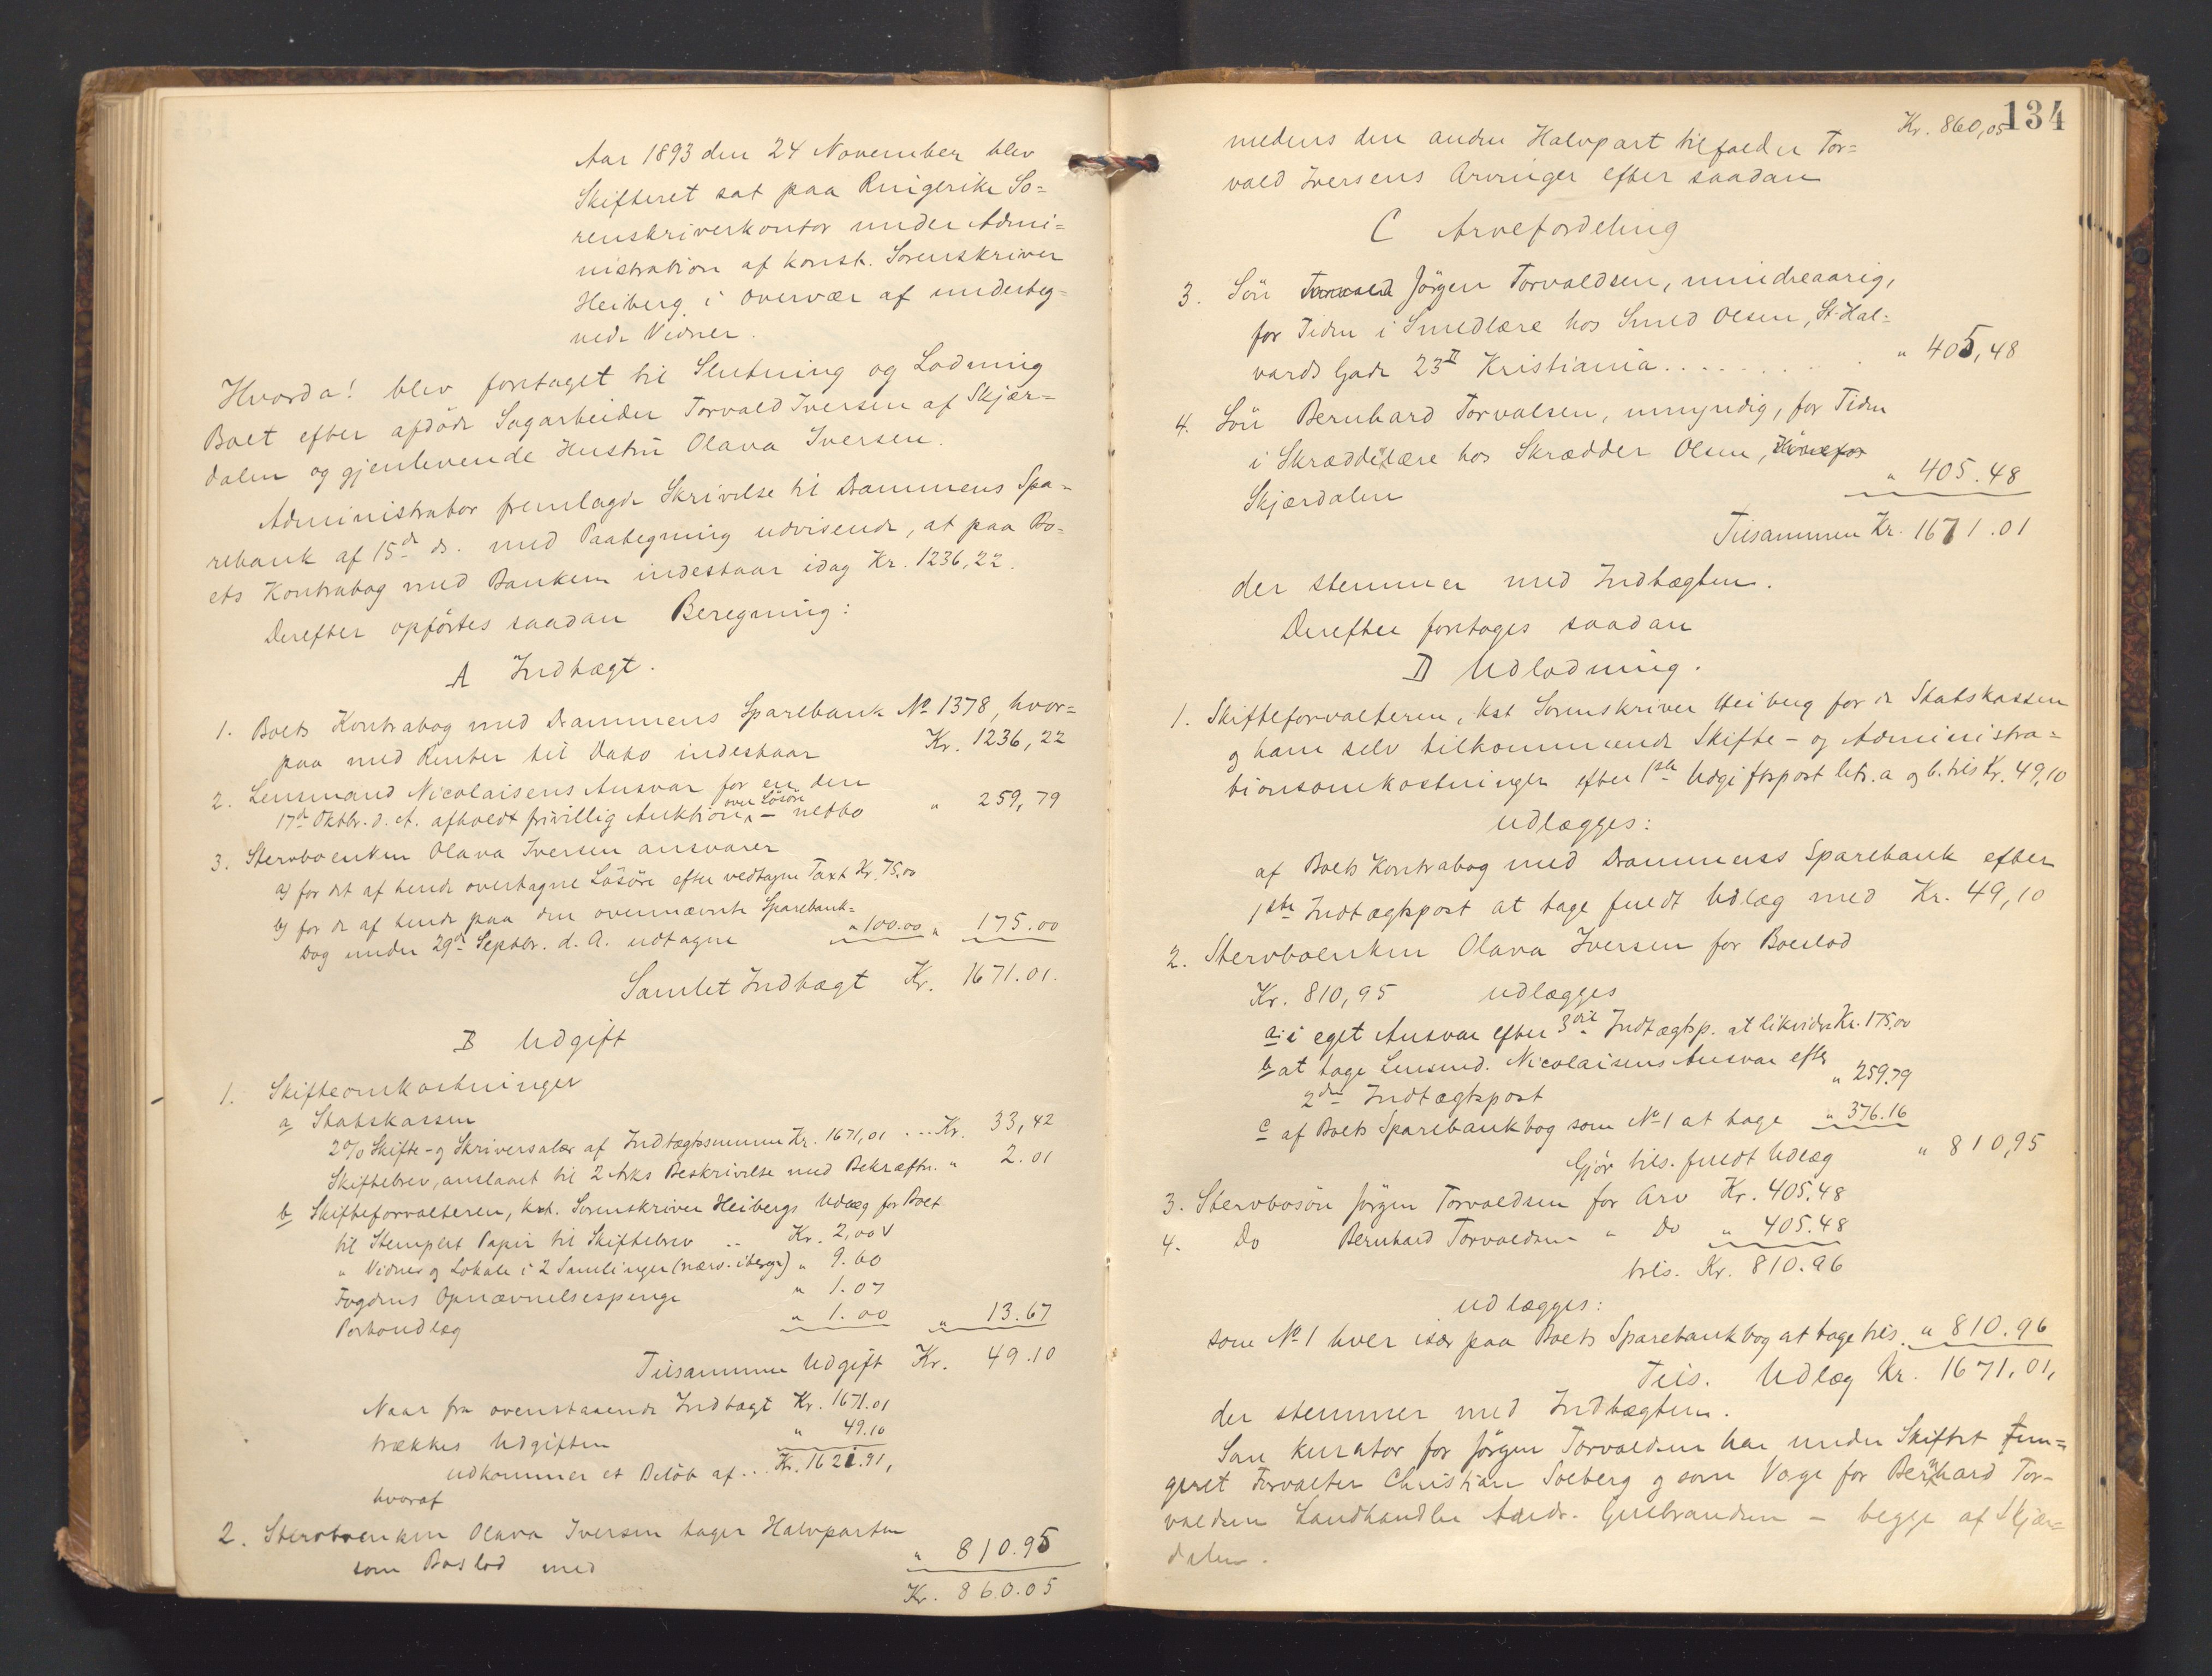 Aar 1893 den 24 November blev
Skifteret sat paa Ringerike So=
renskriverkontor under Admi=
nistration af konst. Sorenskriver
Heiberg i overvær af underteg=
nede Vidner.
Hvorda! blev foretaget til Slutning og Lodning
Boet efter afdøde Sagarbeider Torvald Iversen af Skjær=
dalen og gjenlevende Hustru Olava Iversen.
Administrator fremlagde Skrivelse til Drammens Spa=
rebank af 15de ds. med Paategning udvisende, at paa Bo=
ets Kontrabog med Banken indestaar idag Kr. 1236,22.
Derefter opførtes saadan Beregning:
A Indtægt.
1. Boets Kontrabog med Drammens Sparebank No 1378, hvor=
paa med Renter til Dato indestaar Kr. 1236,22
2. Lensmand Nicolaisens Ansvar for en den
17de Oktbr. d. A. afholdt frivillig Auktion over Løsøre – netto " 259,79
3. Stervboenken Olava Iversen ansvarer
a) for det af hende overtagne Løsøre efter vedtagne Taxt Kr. 75,00
b) for de af hende paa den ovennævnte Sparebank=
bog under 29de Septbr. d. A. udtagne " 100.00 " 175.00
Samlet Indtægt Kr. 1671.01.
B Udgift
1. Skifteomkostninger
a Statskassen
2% Skifte- og Skriversalær af Indtægtssummen Kr. 1671,01 ... Kr. 33,42
Skiftebrev, anslaaet til 2 Arks Beskrivelse med Bekræftn. " 2.01
b Skifteforvalteren, kst. Sorenskriver Heibergs Udlæg for Boet
til Stemplet Papir til Skiftebrev .. Kr. 2,00
" Vidner og Lokale i 2 Samlinger (nærv. iberegn) " 9.60
Fogdens Opnævnelsespenge " 1.07
Portoudlæg " 1.00 " 13.67
Tilsammen Udgift Kr. 49.10
Naar fra ovenstaaende Indtægt Kr. 1671.01
trækkes Udgiften " 49.10
udkommer et Beløb af ... Kr. 1621.91,
hvoraf
2. Stervboenken Olava Iversen tager Halvparten
som Boslod med " 810.95
Kr. 860.05
134
Kr. 860,05
medens den anden Halvpart tilfalder Tor=
vald Iversens Arvinger efter saadan
C Arvefordeling
3. Søn Torvald Jörgen Torvaldsen, mindreaarig,
for Tiden i Smedlære hos Smed Olsen, St. Hal=
vards Gade 23 II Kristiania ........ " 405,48
4. Søn Bernhard Torvalsen, umyndig, for Tiden
i Skræddelære hos Skrædder Olsen, Hönefos
Skjærdalen " 405.48
Tilsammen Kr. 1671.01
der stemmer med Indtægten.
Derefter foretages saadan
D Udlodning.
1. Skifteforvalteren, kst Sorenskriver Heiberg for de Statskassen
og ham selv tilkommende Skifte- og Administra=
tionsomkostninger efter 1ste Udgiftspost litr. a og b. tils Kr. 49,10
udlægges:
af Boets Kontrabog med Drammens Sparebank efter
1ste Indtægtspost at tage fuldt Udlæg med Kr. 49,10
2. Stervboenken Olava Iversen for Boslod
Kr. 810,95 udlægges
a. i eget Ansvar efter 3die Indtægtsp. at likvidere Kr. 175,00
b at tage Lensmd. Nicolaisens Ansvar efter
2den Indtægtspost " 259.79
c af Boets Sparebankbog som No 1 at tage " 376.16
Gjør tils. fuldt Udlæg " 810,95
3. Stervbosön Jörgen Torvaldsen for Arv Kr. 405.48
4. Do Bernhard Torvaldsen " Do " 405.48
tils. Kr. 810.96
udlægges:
som No 1 hver især paa Boets Sparebankbog at tage tils. " 810.96
Tils. Udlæg Kr. 1671,01,
der stemmer med Indtægten.
Som kurator for Jörgen Torvaldsen har under Skiftet fun=
geret Forvalter Christian Solberg og som Verge for Bernhard Tor=
valdsen Landhandler Andr. Gulbrandsen – begge af Skjær=
dalen.